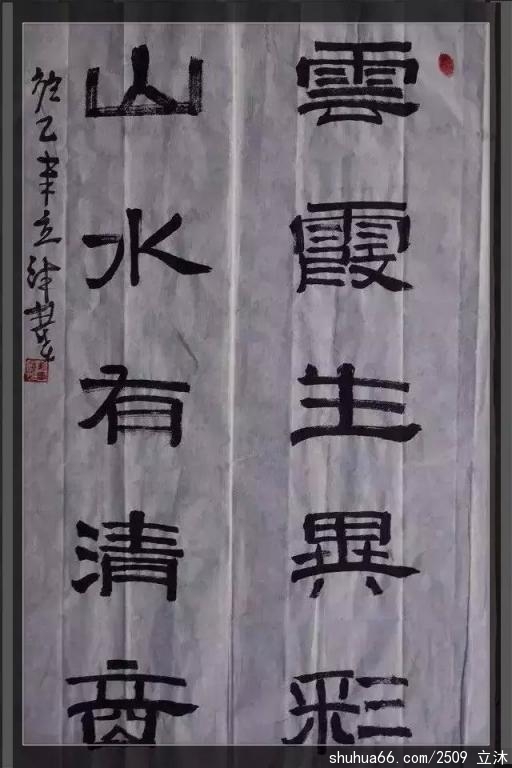 雲霞生異彩
山水有清音
shuhua66.com/2509 立沐